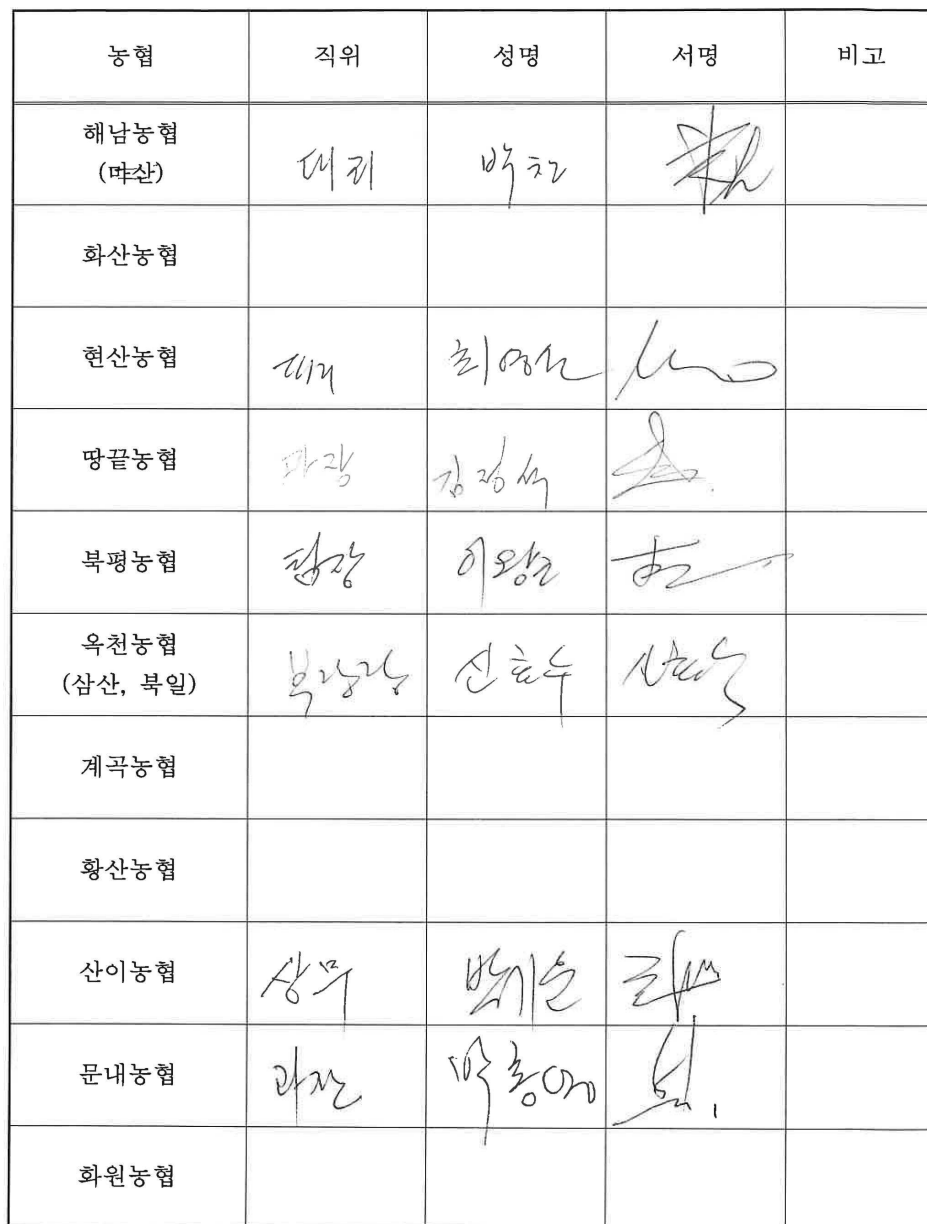 농협 직위 성명 서명 비고
해남농협
(마산) 대리 박
화산농협
현산농협 대리 최영
땅끝농협 과장 김정석
북평농협 팀장 이왕근
옥천농협
(삼산, 북일) 복장장 신효수 신효수
계곡농협
황산농협
산이농협 상무 박기순
문내농협 과장 박홍
화원농협